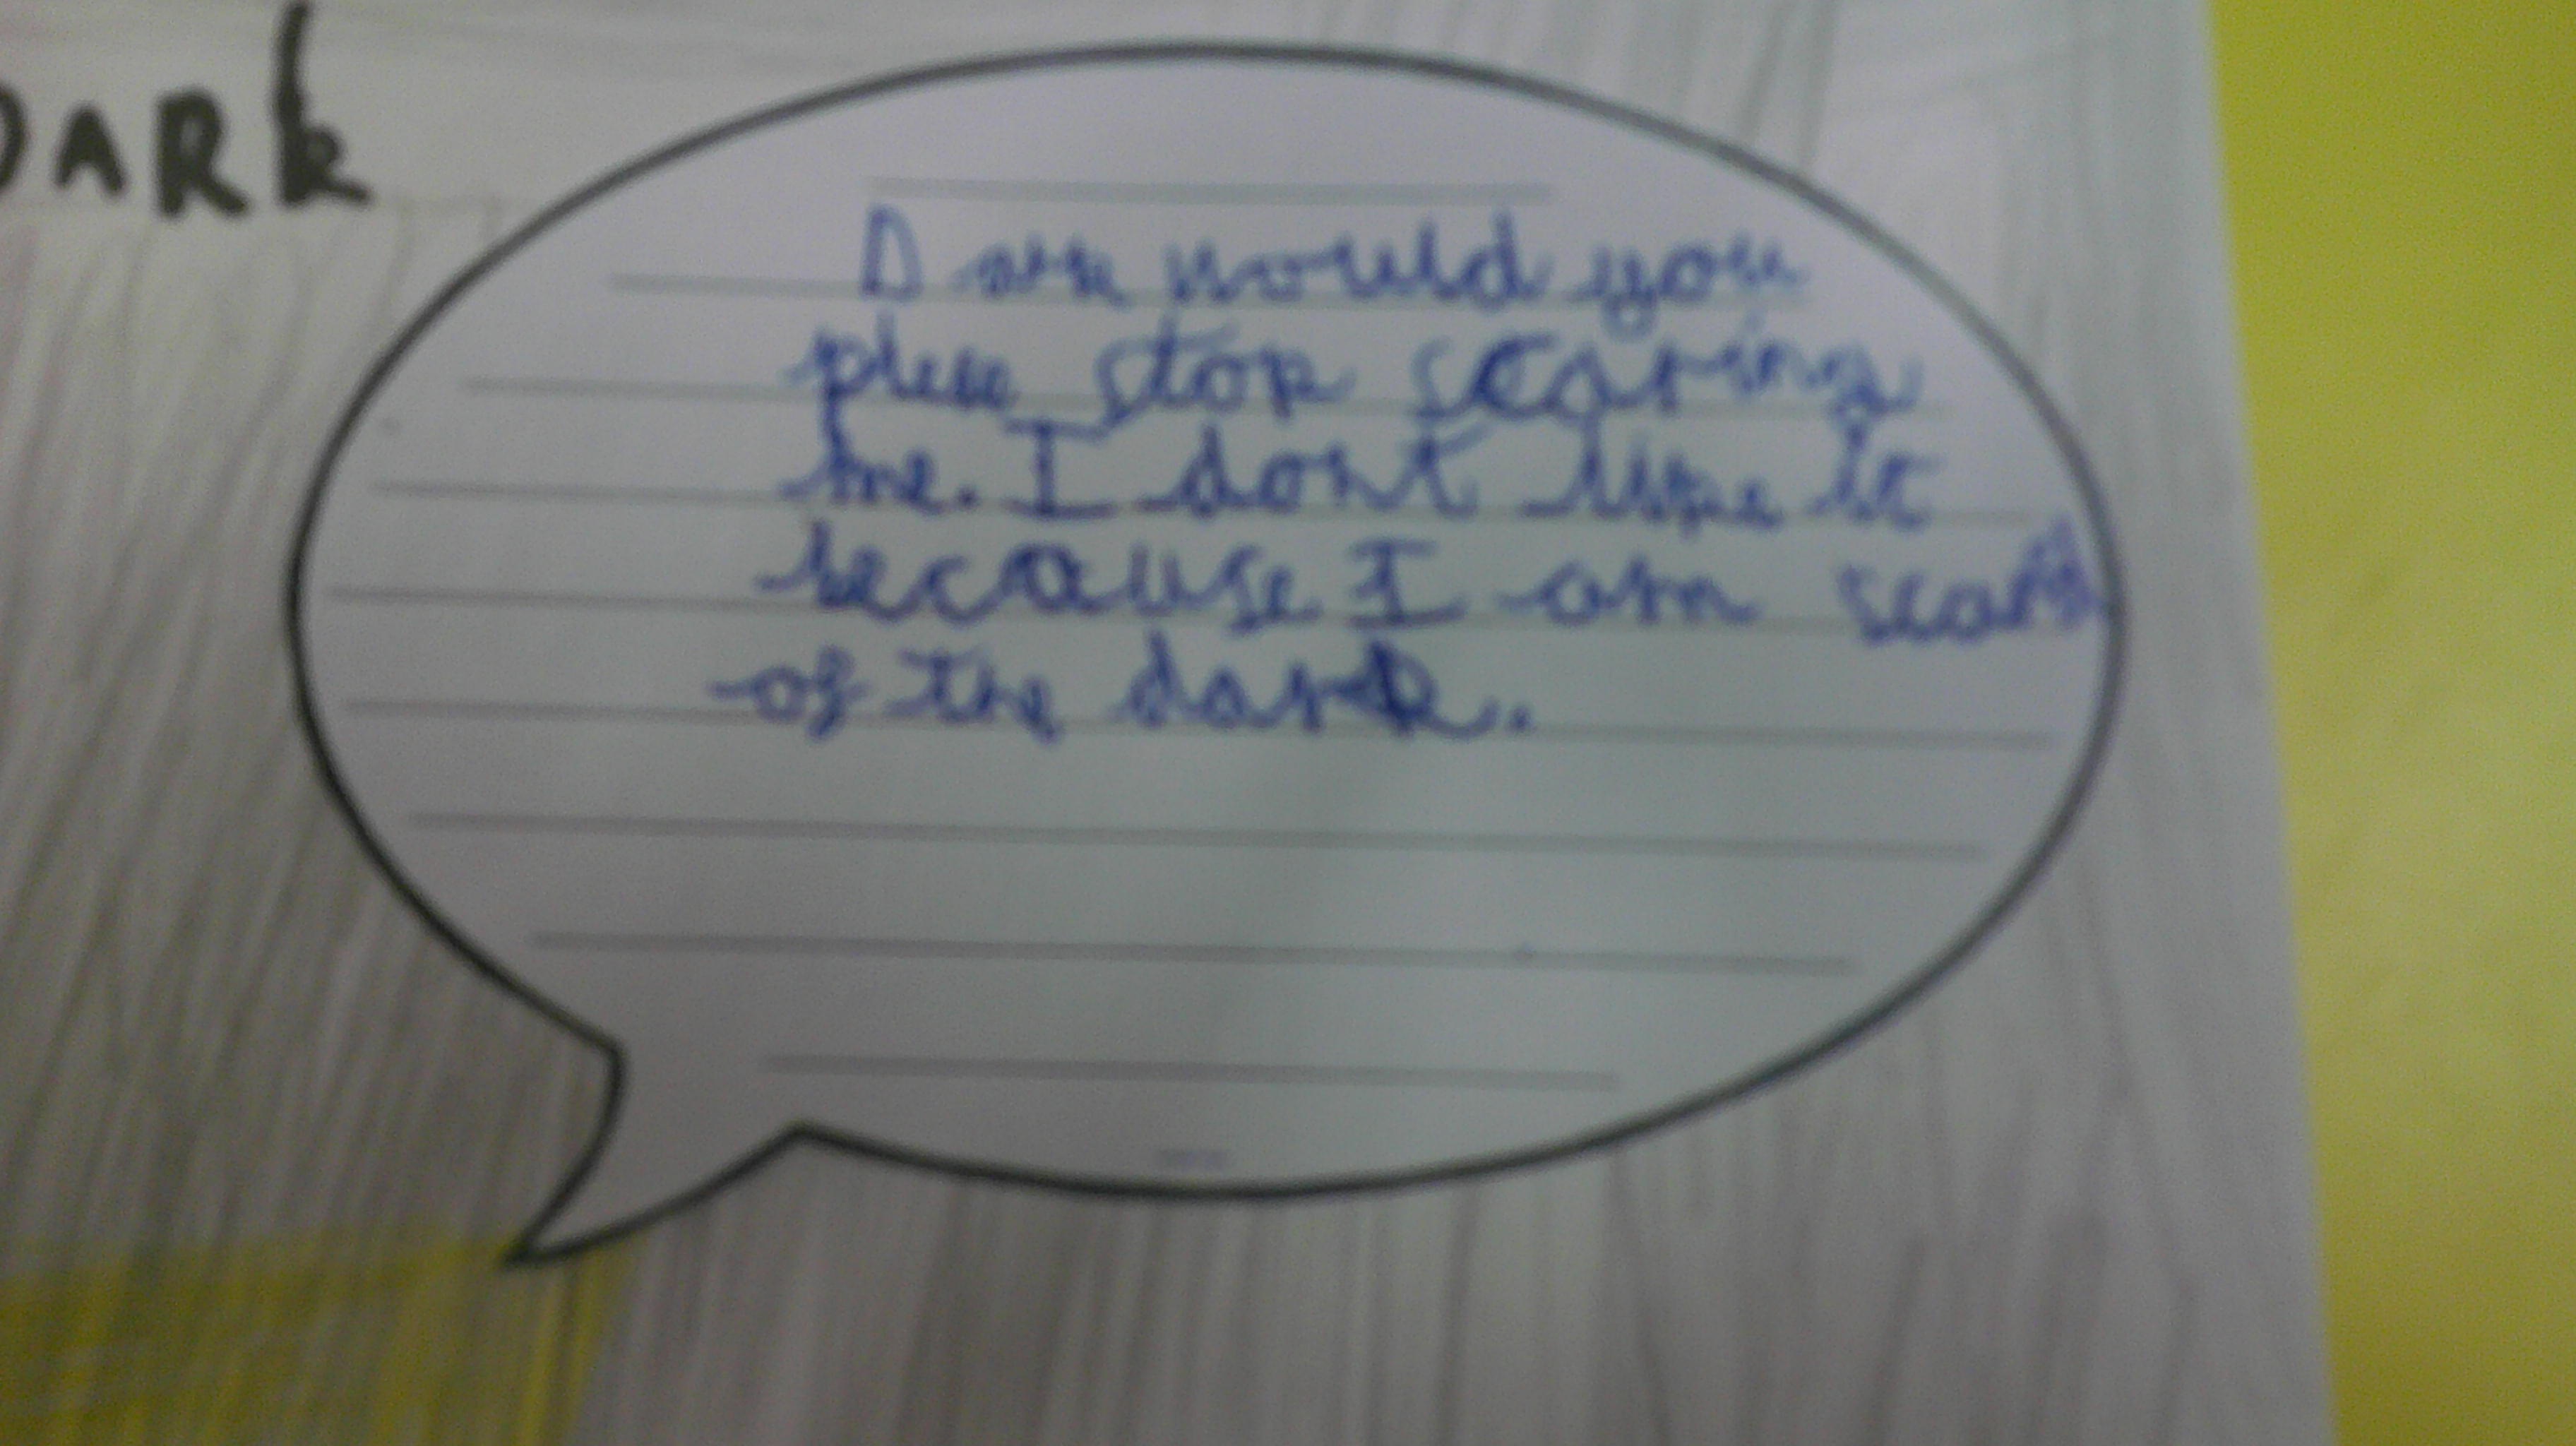 DARk
Dark would you
plese stop scaring
me. I dont like it
because I am
of the dark.